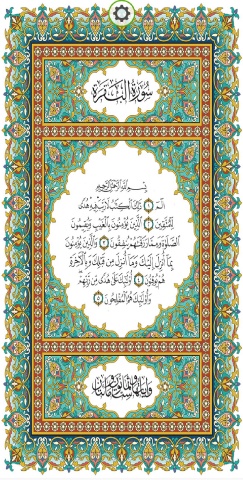 سورة البقرة
بسم الله الرحمن الرحيم
الم ١ ذلك الكتب لا ريب فيه هدى
للمتقين ٢ الذين يؤمنون بالغيب ويقيمون
الصلوة ومما رزقنهم ينفقون ٣ والذين يؤمنون
بما أنزل إليك وما أنزل من قبلك وبالآخرة
هم يوقنون ٤ أولئك على هدى من ربهم
وأولئك هم المفلحون ٥